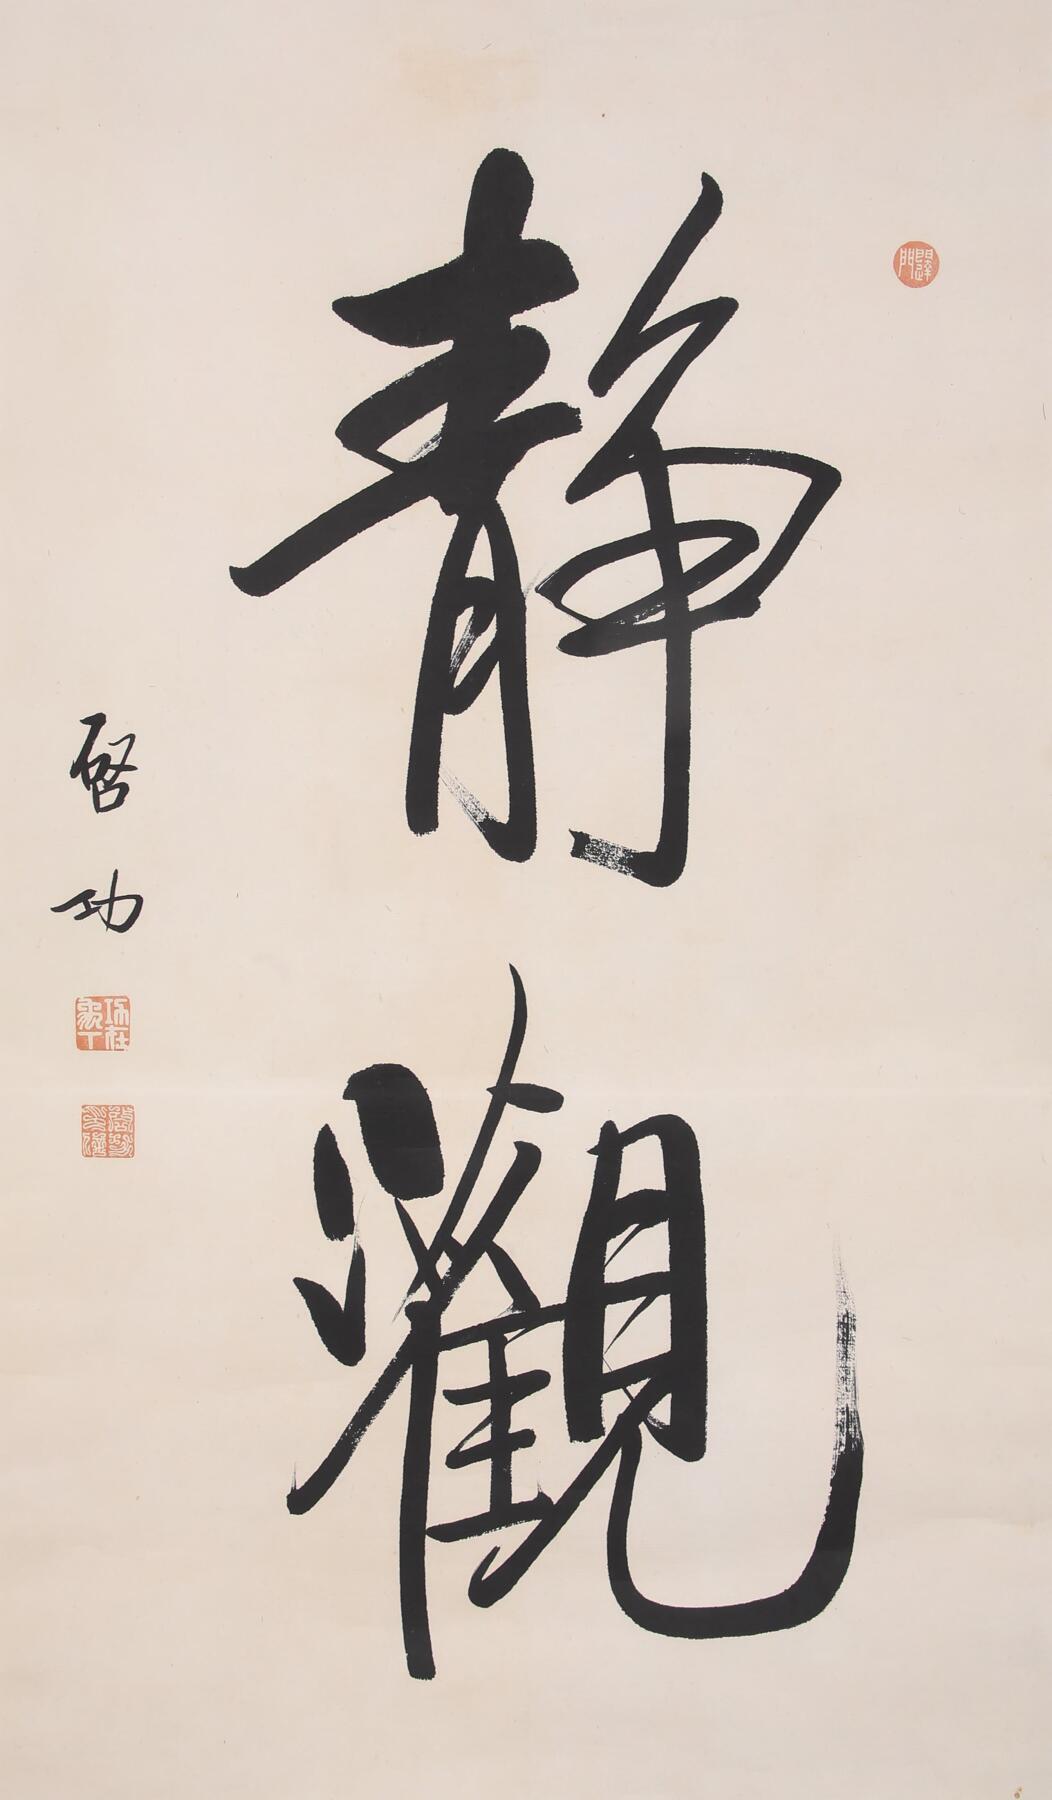 靜觀
啓功